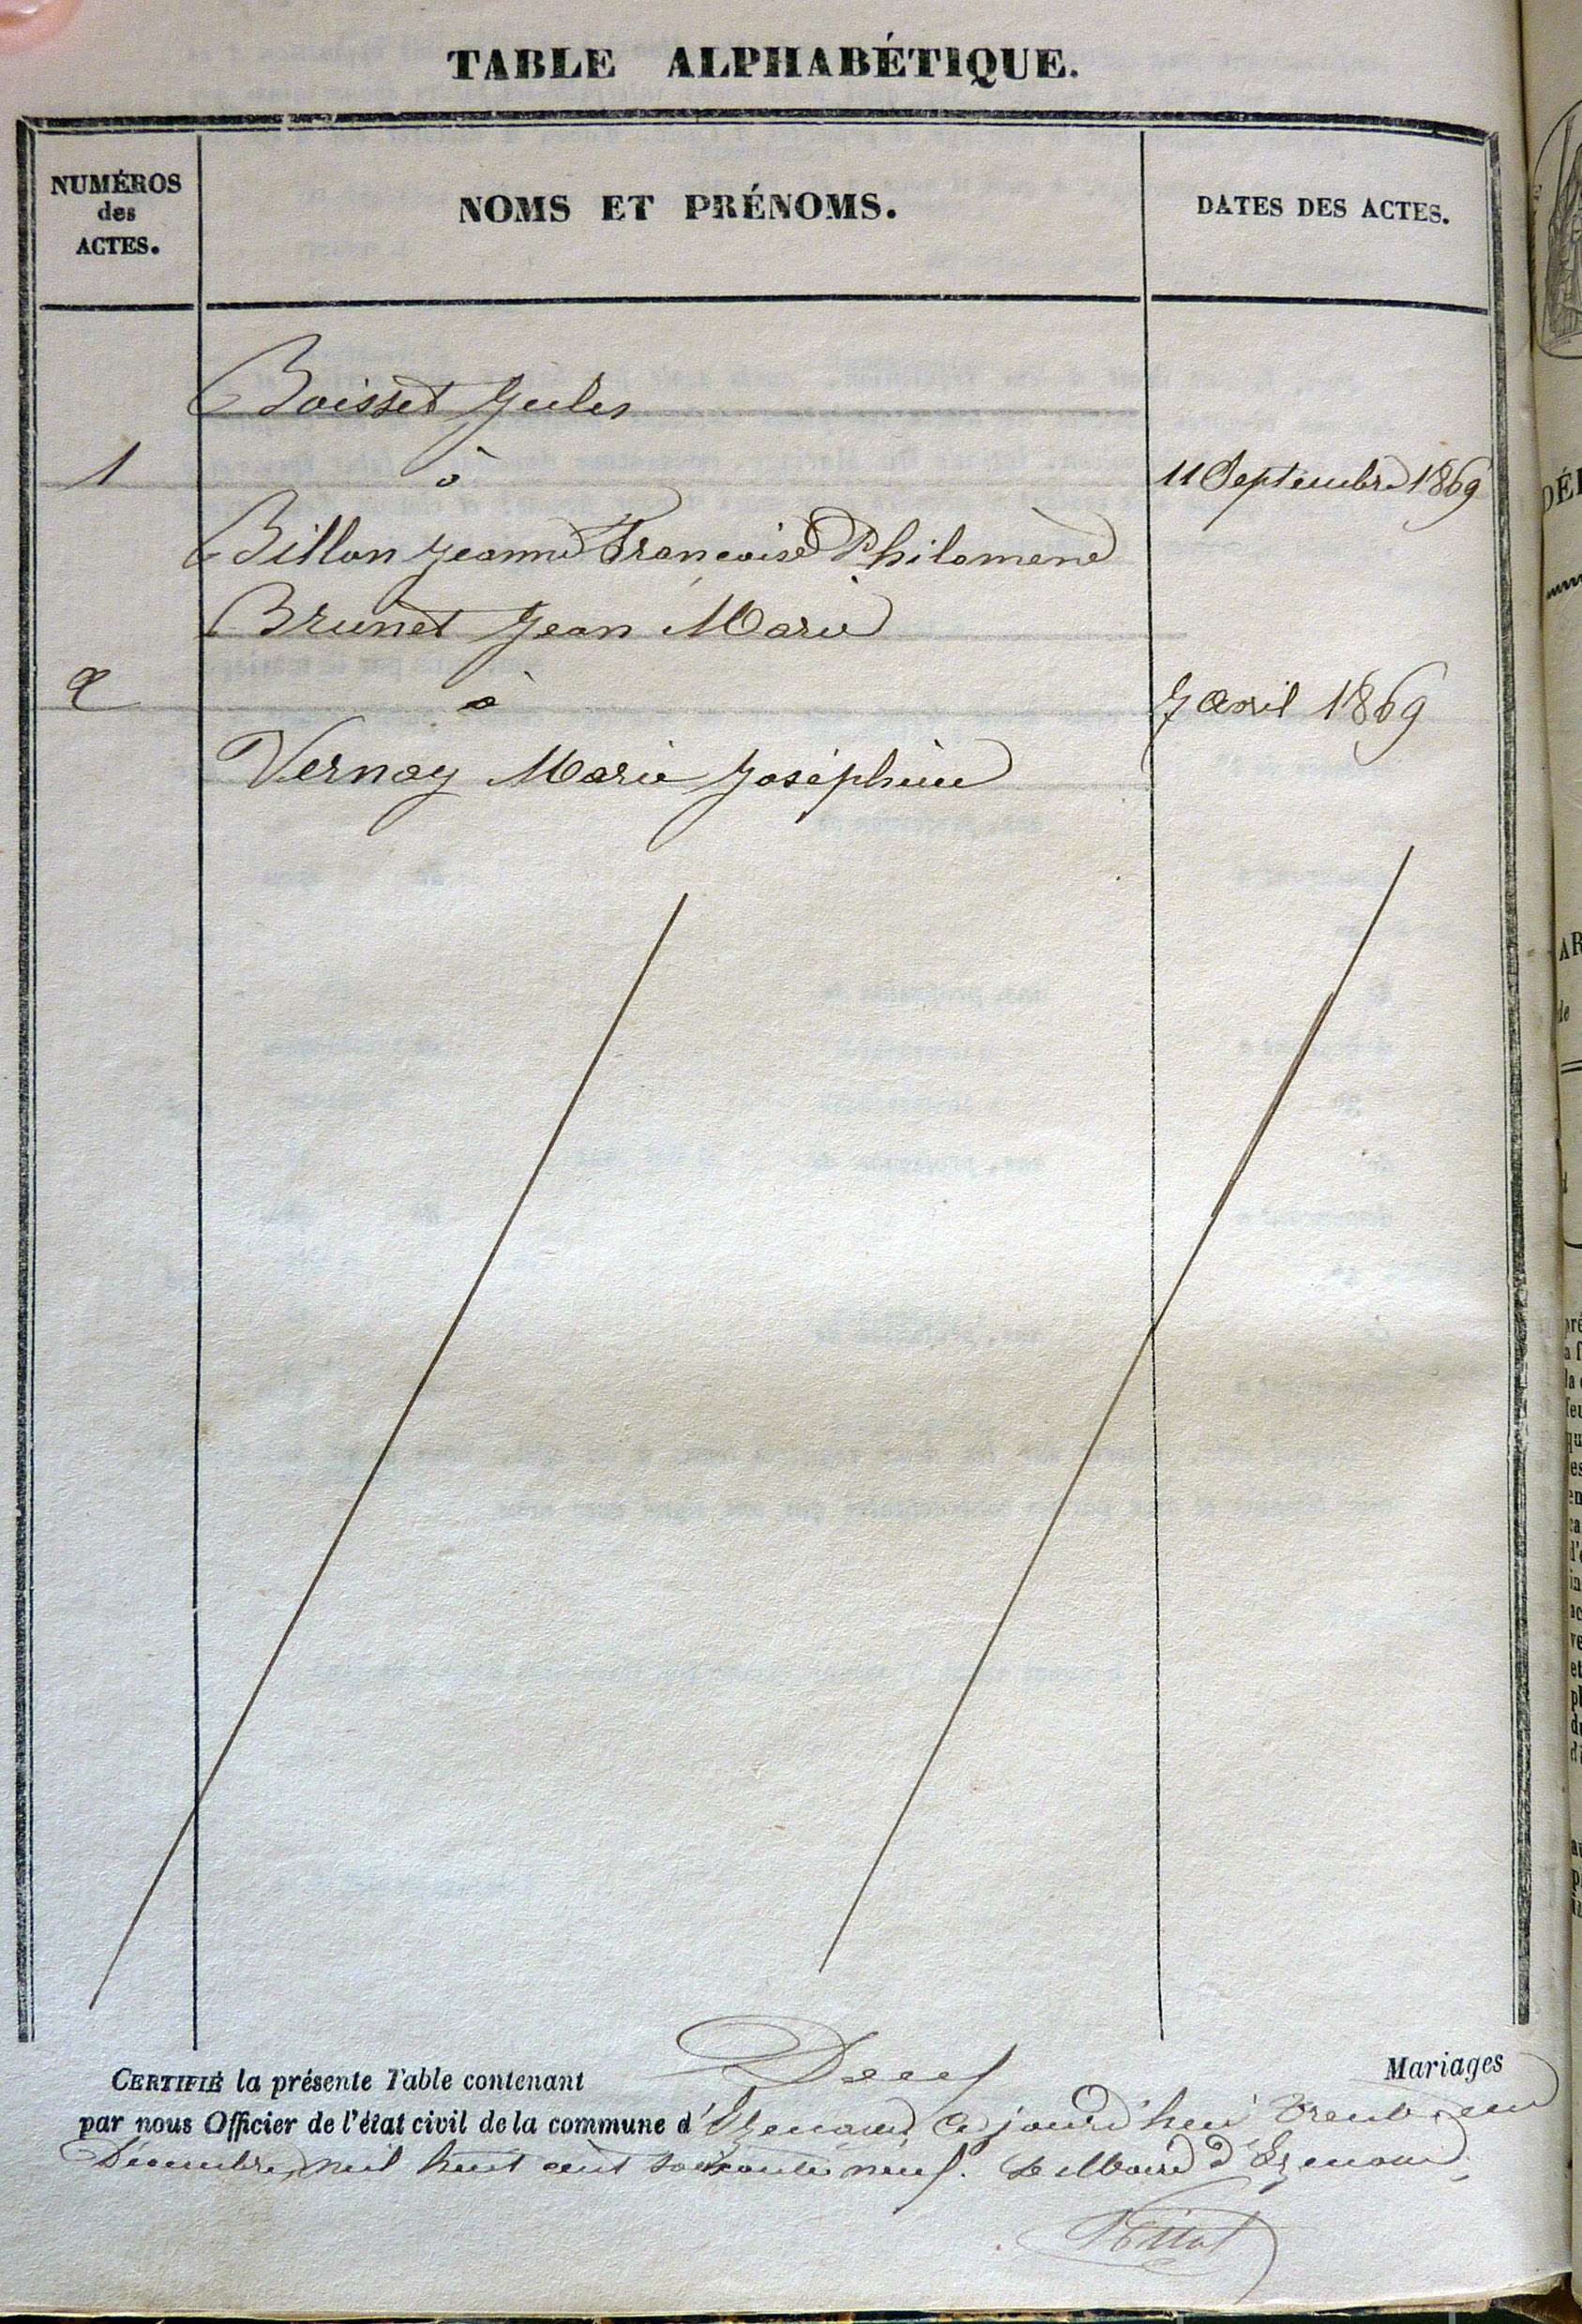 TABLE ALPHABÉTIQUE.
NUMÉROS
des
ACTES.
NOMS ET PRÉNOMS.
DATES DES ACTES.
Boisset Jules
1 à 11 Septembre 1869
Billon Jeanne Françoise Philomène
Brunet Jean Marie
2 à 7 avril 1869
Vernay Marie Joséphine
CERTIFIÉ la présente Table contenant Deux Mariages
par nous Officier de l'état civil de la commune d' ce jourd'hui trente un
Décembre mil huit cent soixante neuf. Le Maire d'